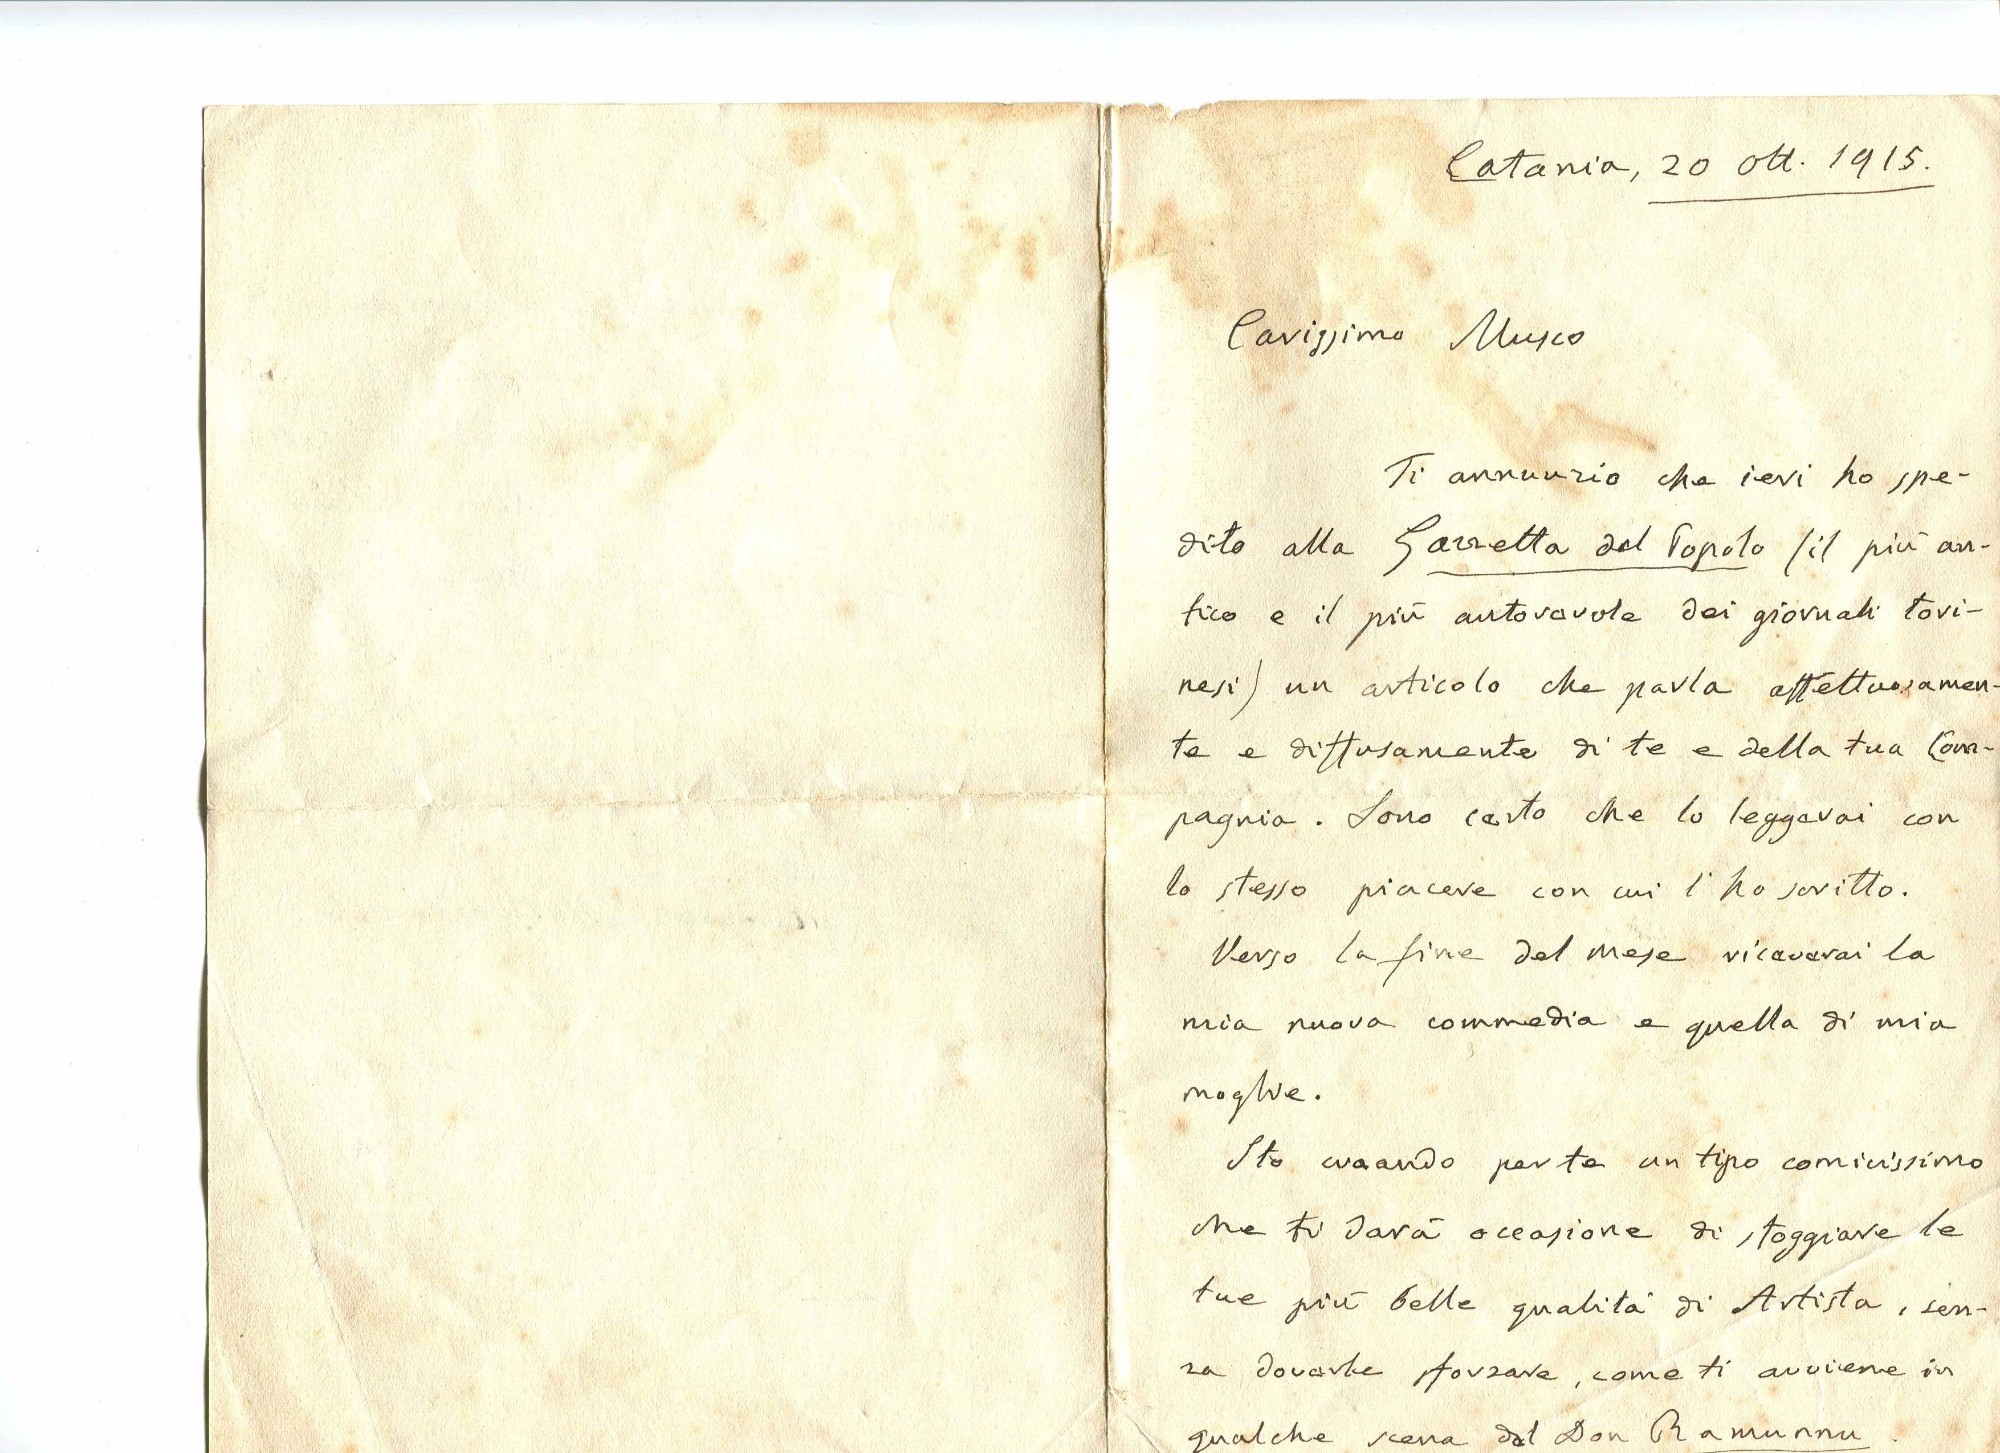 Catania, 20 ott. 1915.
Carissimo Musco
Ti annunzio che ieri ho spe-
dito alla Gazzetta del Popolo (il più an-
tico e il più autorevole dei giornali tori-
nesi) un articolo che parla affettuosamen-
te e diffusamente di te e della tua Com-
pagnia. Sono certo che lo leggerai con
lo stesso piacere con cui l'ho scritto.
Verso la fine del mese riceverai la
mia nuova commedia e quella di mia
moglie.
Sto creando per te un tipo comicissimo
che ti darà occasione di sfoggiare le
tue più belle qualità di Artista, sen-
za doverle sforzare, come ti avviene in
qualche scena del Don Ramunnu.